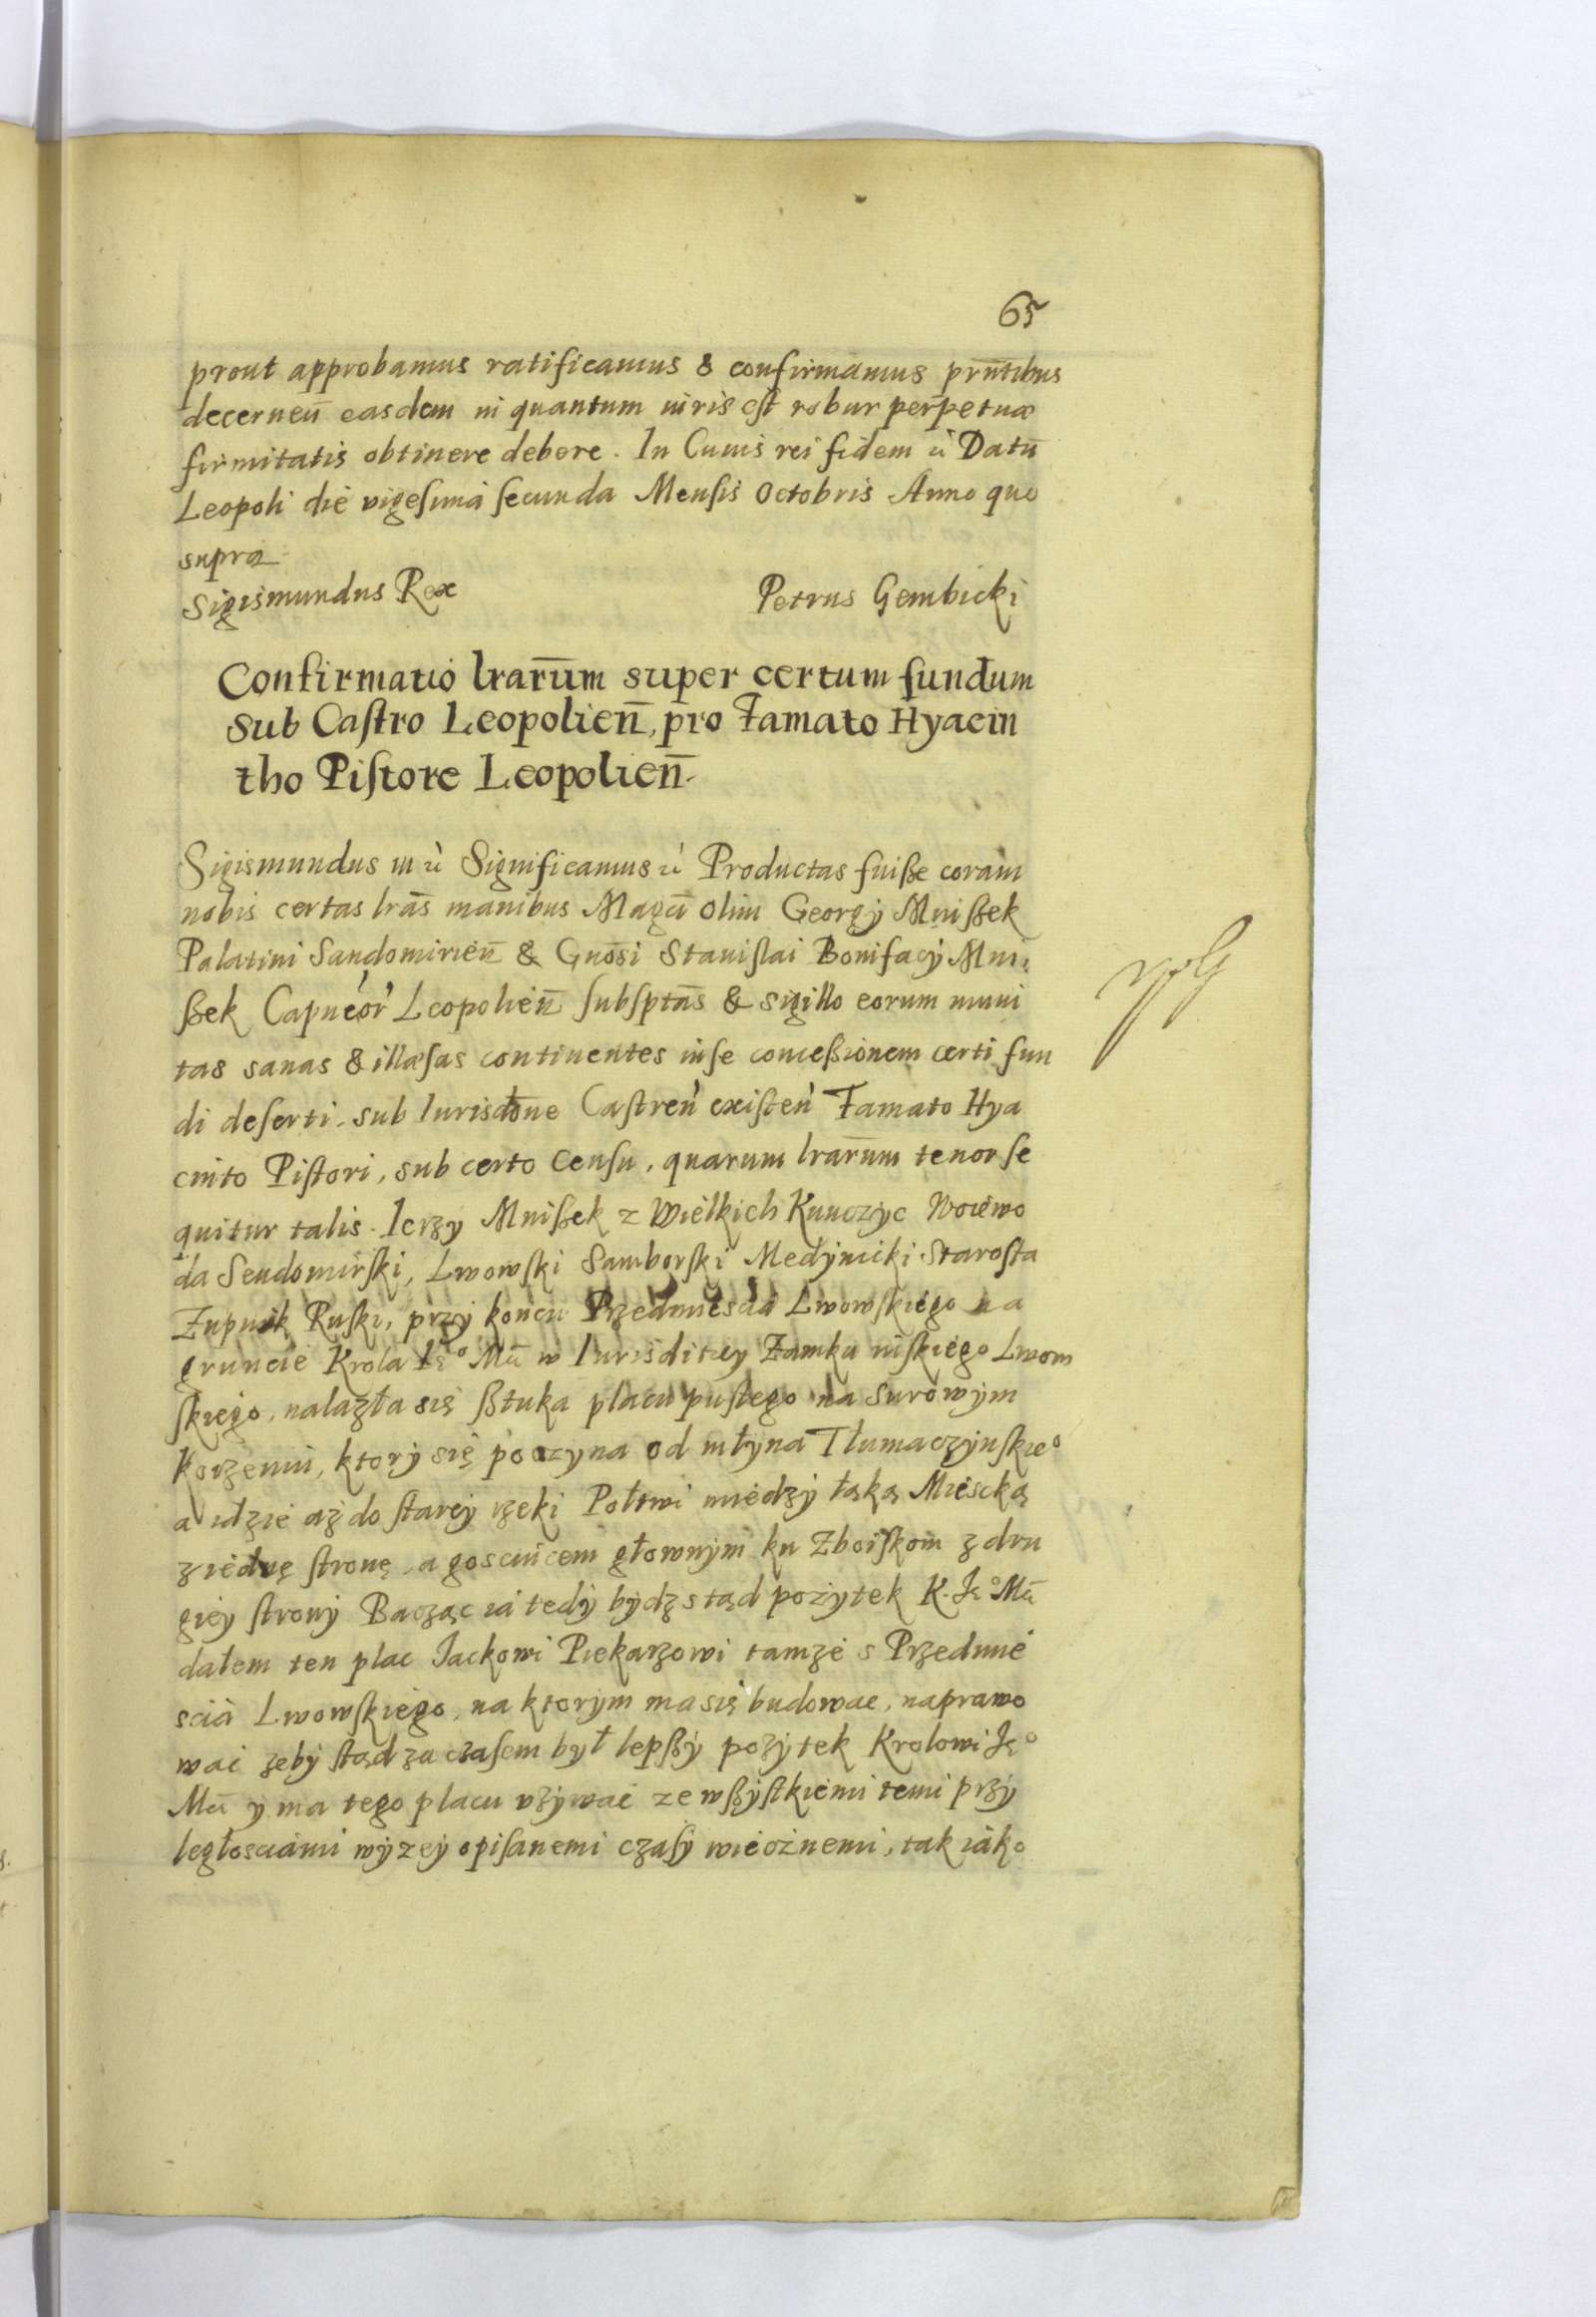 65
prout approbamus ratificamus & confirmamus prñtibus
decerneñ easdem in quantum iuris est robur perpetuæ
firmitatis obtinere debere. In Cuius rei fidem Datũ
Leopoli die vigesima secunda Mensis Octobris Anno quo
supra
Sigismundus Rex Petrus Gembicki
Confirmatio lrarũm super certum fundum
sub Castro Leopolieñ, pro Famato Hyacin
tho Pistore Leopolieñ.
Sigismundus III Significamus Productas fuisse coram
nobis certas lrãs manibus Magci olim Georgÿ Mnißek
Palatini Sandomirieñ & Gnõsi Stanislai Bonifacÿ Mni
ßek Capneor Leopolieñ subsptãs & sigillo eorum muni
tas sanas & illæsas continentes in se conceßionem certi fun
di deserti sub Iurisdtõne Castren existen Famato Hya
cinto Pistori, sub certo censu, quarum lrarũm tenor se
quitur talis. Ierzy Mnißek z Wielkich Kunczyc Woiewo
da Sendomirski, Lwowski Samborski Medÿnicki Starosta
Zupnik Ruski, przÿ koncu Przedmiescia Lwowskiego na
gruncie Krola Ie° Mci w Iurisditiey Zamku niskiego Lwow
skiego, nalazła się ßtuka placu pustego na surowÿm
korzeniu, ktorÿ się poczyna od młyna Tłumaczÿnskie°
a idzie aż do starey rzeki Połtwi miedzÿ łąką Miescką
z iednę stronę, a goscincem głownÿm ku Zboiskom z dru
giey stronÿ Bacząc ia tedÿ bydz stąd pożytek K. Ie° Mci
dałem ten plac Jackowi Piekarzowi tamże s Przedmie
scia Lwowskiego, na ktorym ma się budowac, naprawo
wac żeby stąd za czasem był lepßÿ pożÿtek Krolowi Ie°
Mci ÿ ma tego placu vżÿwac ze wßÿstkiemi temi przÿ
ległosciami wÿzeÿ opisanemi czasÿ wiecznemi, tak iako